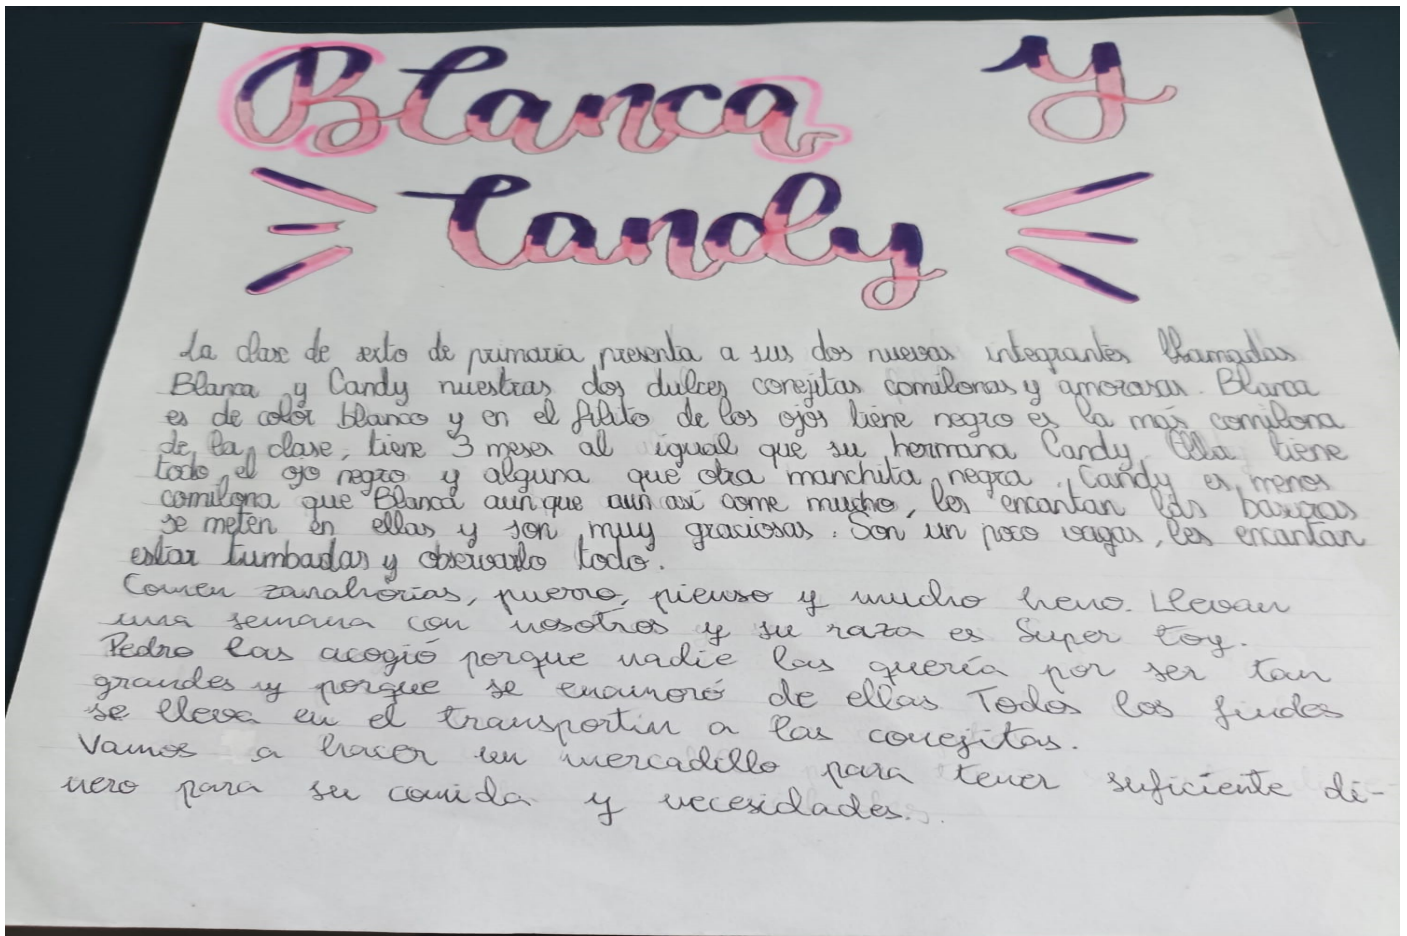 Blanca y
Candy
La clase de sexto de primaria presenta a sus dos nuevas integrantes llamadas
Blanca y Candy nuestras dos dulces conejitas comilonas y amorosas. Blanca
es de color blanco y en el filito de los ojos tiene negro es la más comilona
de la clase, tiene 3 meses al igual que su hermana Candy. Ella tiene
todo el ojo negro y alguna que otra manchita negra. Candy es menos
comilona que Blanca aunque aun así come mucho, les encantan las basuras
se meten en ellas y son muy graciosas. Son un poco vagas, les encantan
estar tumbadas y observarlo todo.
Comen zanahorias, puerro, pienso y mucho heno. Llevan
una semana con nosotros y su raza es Super toy.
Pedro las acogió porque nadie las quería por ser tan
grandes y porque se enamoró de ellas Todos los findes
se lleva en el transportin a las conejitas.
Vamos a hacer un mercadillo para tener suficiente di-
nero para su comida y necesidades.